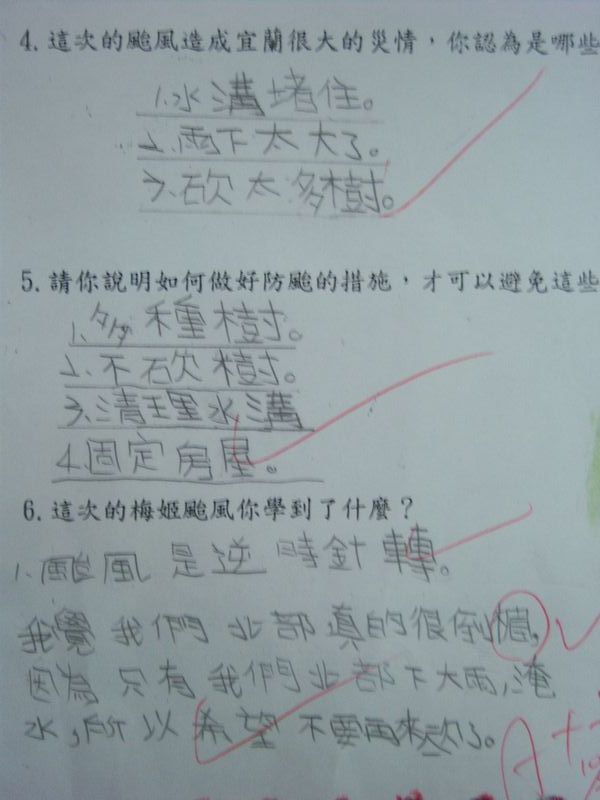 4.這次的颱風造成宜蘭很大的災情，你認為是哪些
1.水溝堵住。
2.雨下太大了。
3.砍太多樹。
5.請你說明如何做好防颱的措施，才可以避免這些
1.多種樹。
2.不砍樹。
3.清理水溝
4.固定房屋。
6.這次的梅姬颱風你學到了什麼？
1.颱風是逆時針轉。
我覺我們北部真的很倒楣,
因為只有我們北部下大雨,淹
水,所以希望不要再來了。
A++